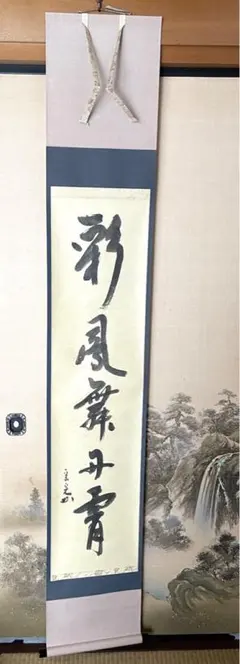 彩鳳舞丹霄